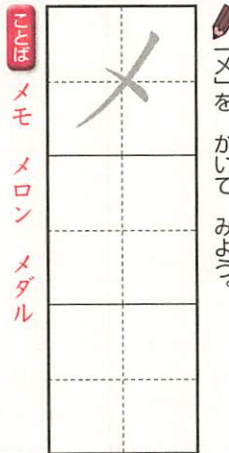 「メ」を　かいて　みよう。
メ
ことば　メモ　メロン　メダル